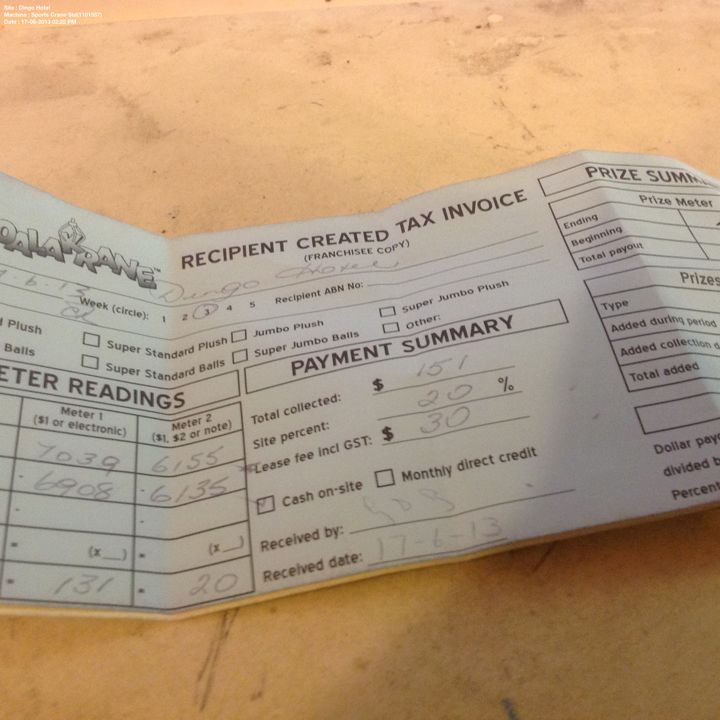 Site : Dingo Hotel
Date : 17-06-2013 02:22 PM
RECIPIENT CREATED TAX INVOICE
(FRANCHISEE COPY)
Dingo Hotel
Recipient ABN No:
Week (circle): 1 2 3 4 5
Plush
Super Standard Plush
Jumbo Plush
Super Jumbo Plush
Balls
Super Standard Balls
Super Jumbo Balls
Other:
METER READINGS
Meter 1
($1 or electronic)
Meter 2
($1, $2 or note)
7039 6155
- 6908 - 6135
(x__) = (x__)
= 131 = 20
PAYMENT SUMMARY
Total collected: $ 151
Site percent: 20 %
Lease fee incl GST: $ 30
Cash on-site
Monthly direct credit
Received by:
Received date: 17-6-13
PRIZE SUMM
Prize Meter
Ending
Beginning
Total payout
Prizes
Type
Added during period
Added collection d
Total added
Dollar pay
divided b
Percent